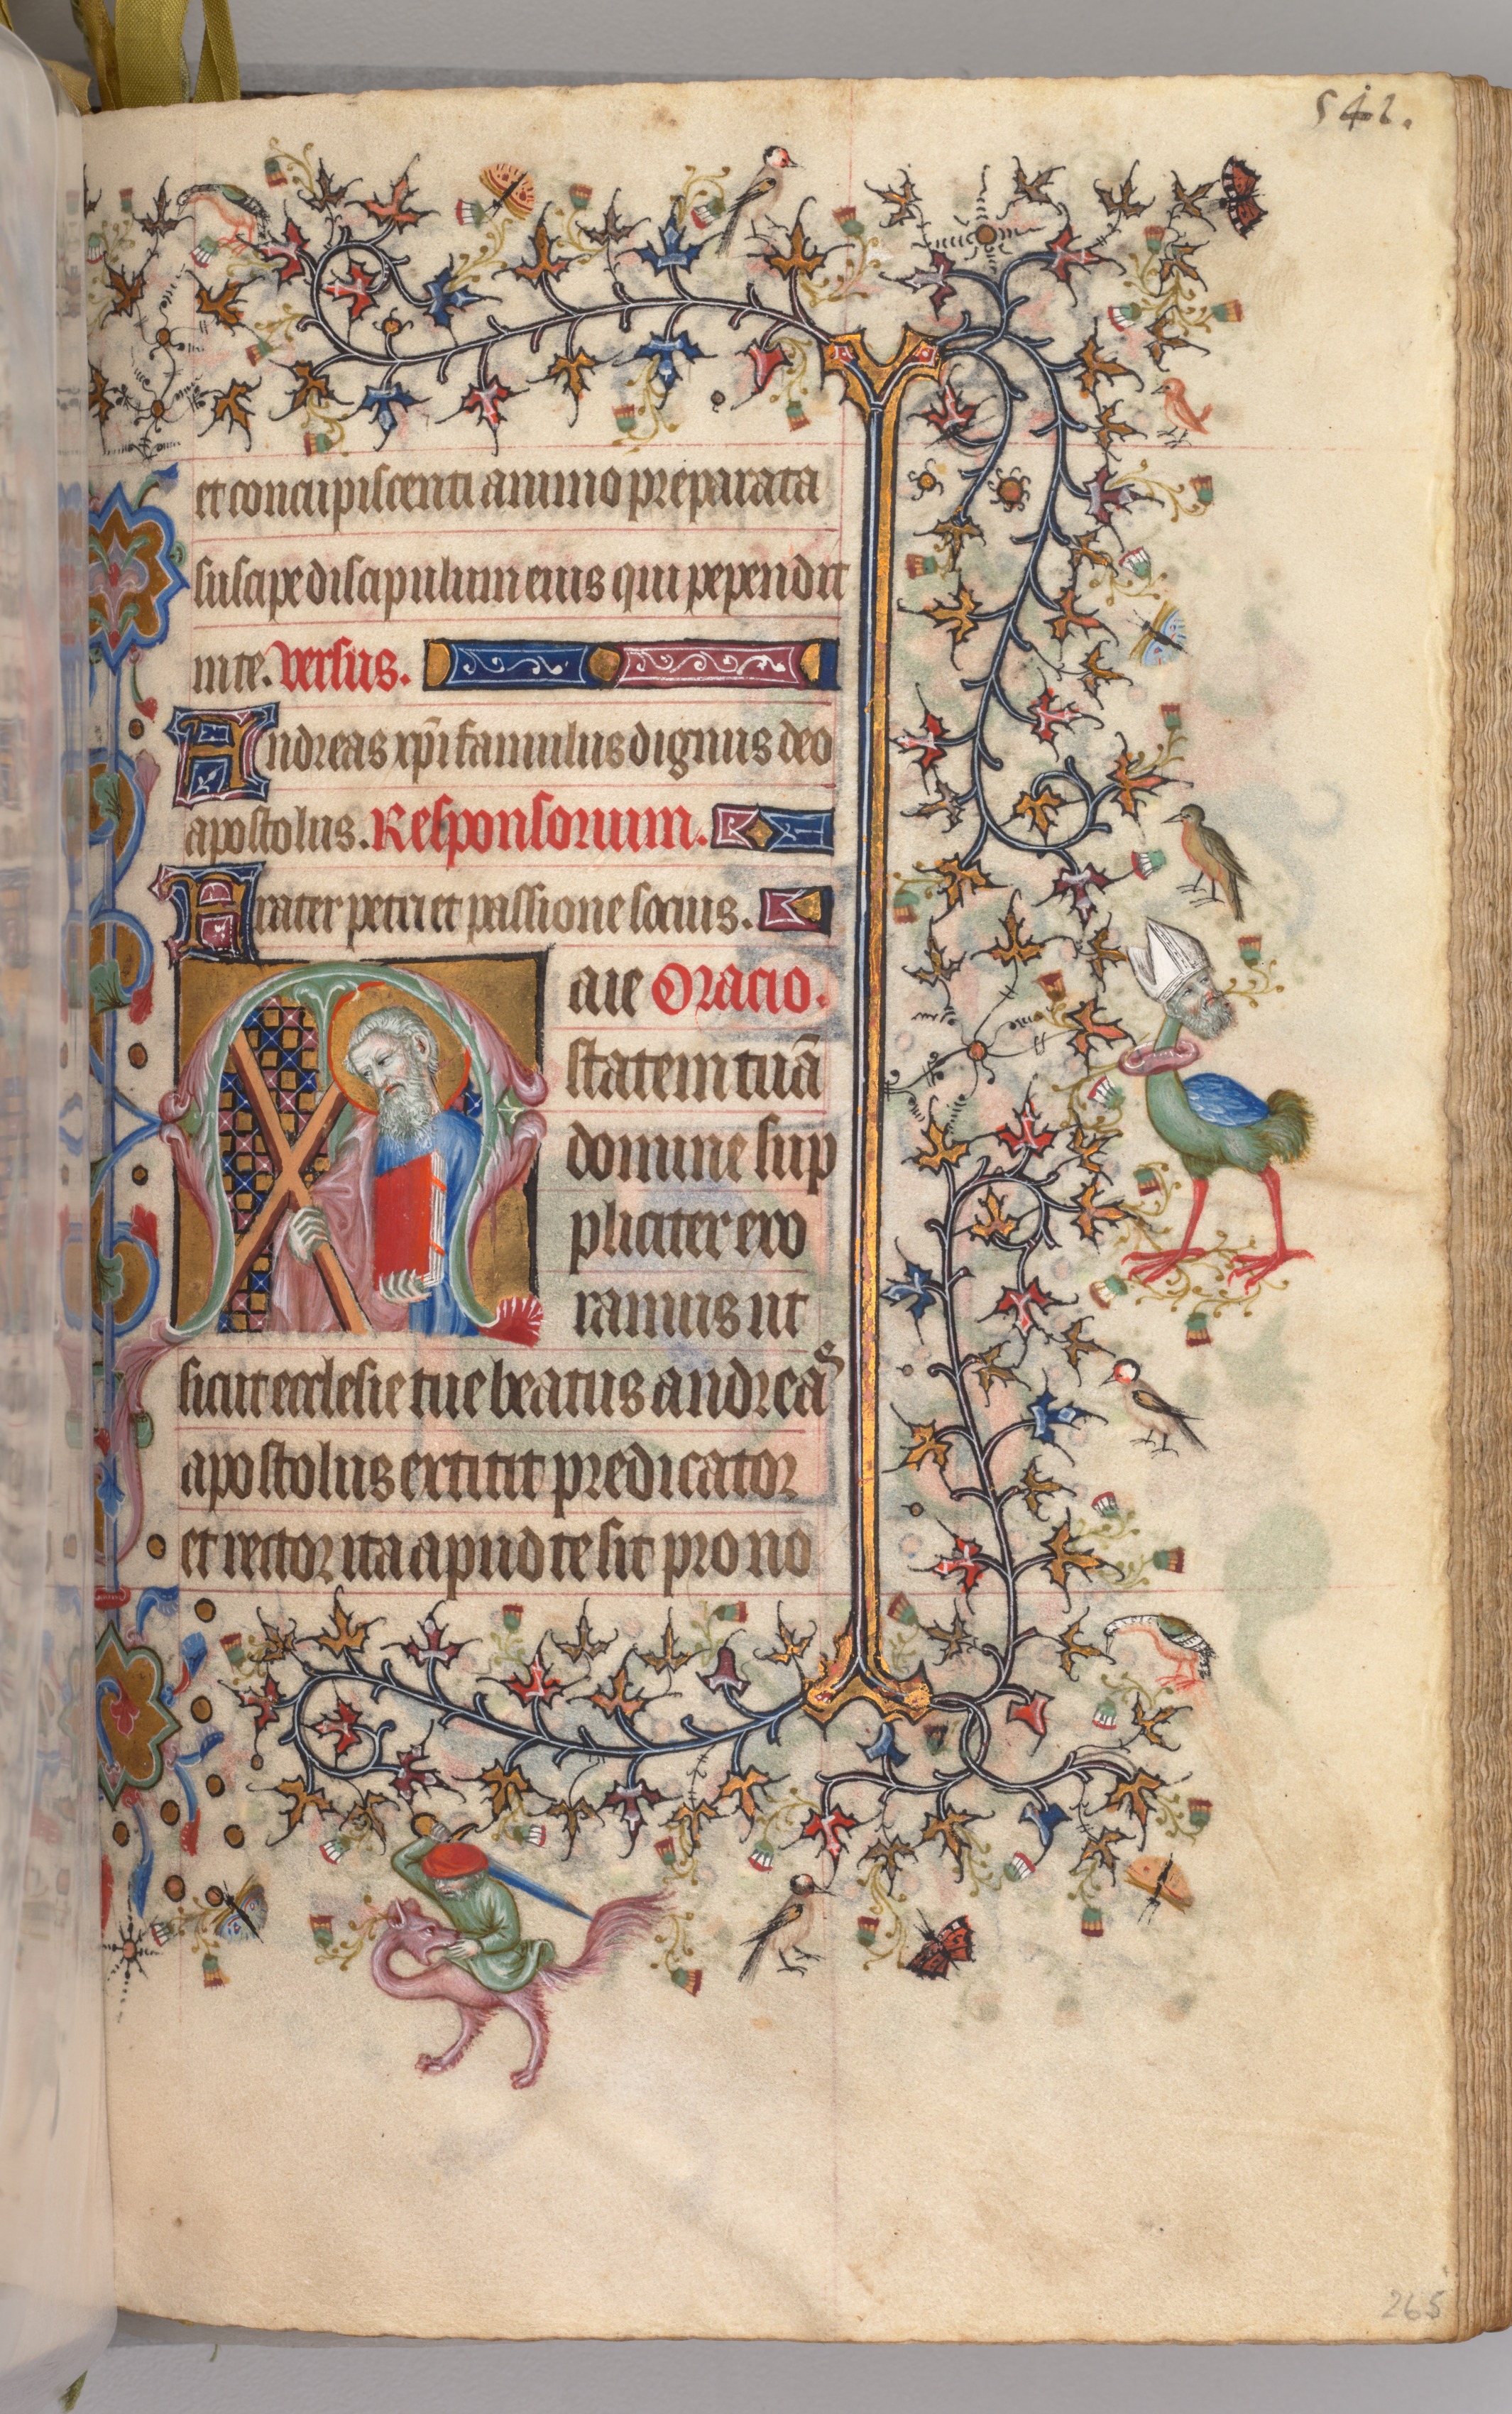 541.
et concupiscenti animo preparata
suscipe discipulum eius qui pependit
in te. Versus.
Andreas xp̄i famulus dignus deo
apostolus. Responsorium.
Frater petri et passione socius.
M aie Oracio.
statem tuā
domine sup
pliciter exo
ramus ut
sicut ecclesie tue beatus andreas
apostolus extitit predicator
et rector ita apud te sit pro no
265